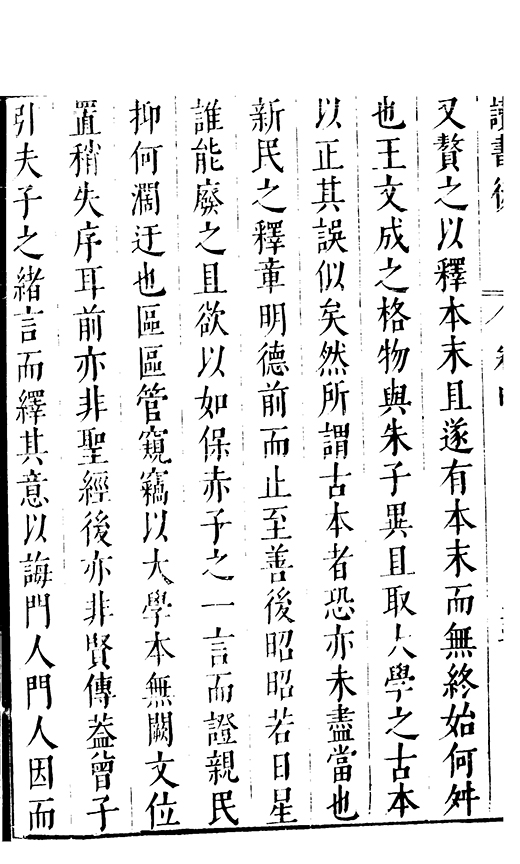 讀書後
又贅之以釋本末且遂有本末而無終始何舛
也王文成之格物與朱子異且取大學之古本
以正其誤似矣然所謂古本者恐亦未盡當也
新民之釋章明德前而止至善後昭昭若日星
誰能廢之且欲以如保赤子之一言而證親民
抑何濶迂也區區管窺竊以大學本無闕文位
置稍失序耳前亦非聖經後亦非賢傳葢曾子
引夫子之緒言而繹其意以誨門人門人因而